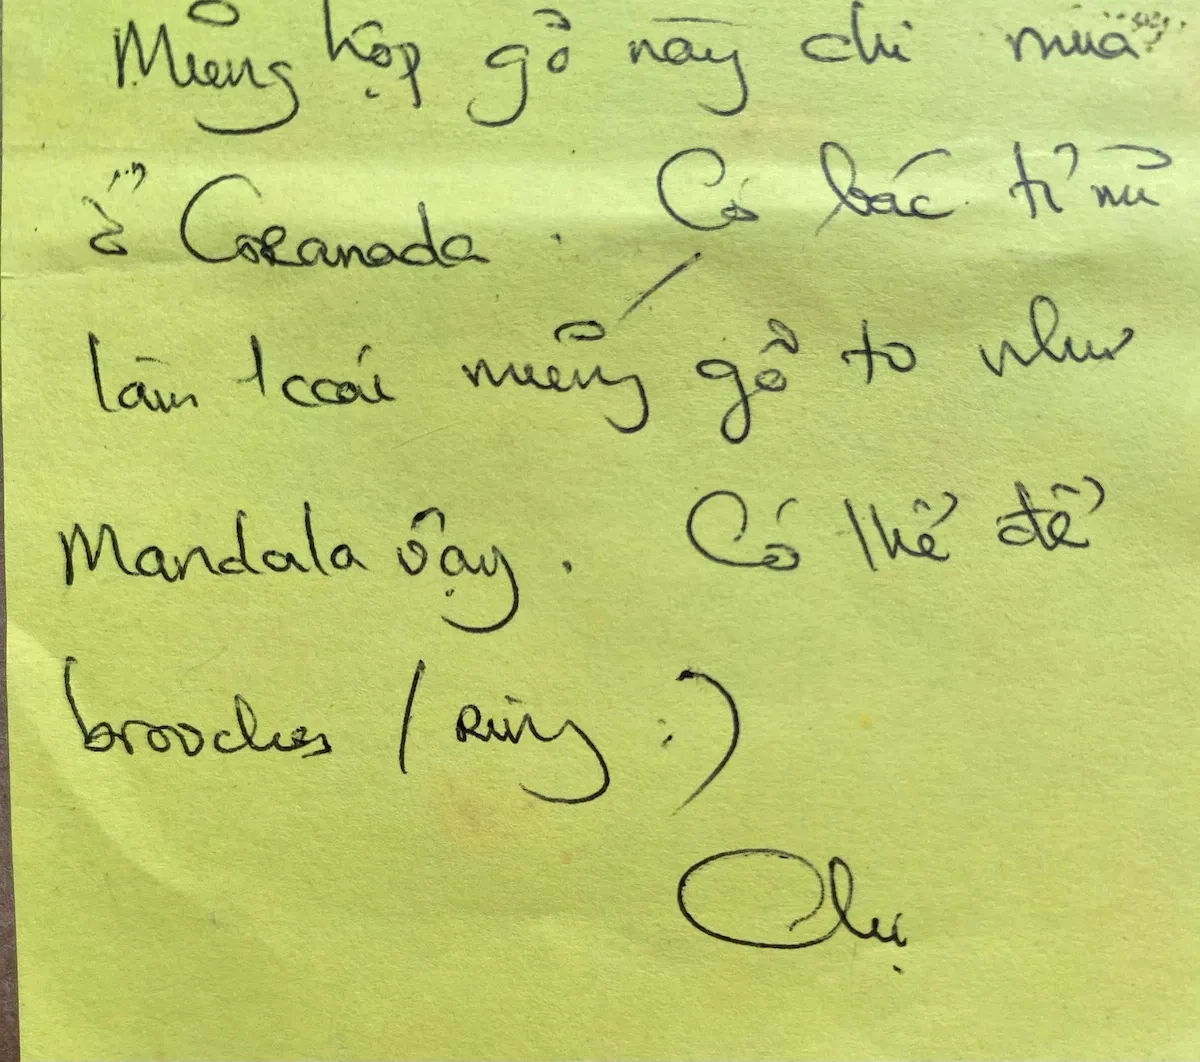 Miếng hộp gỗ này chị mua
ở Coranada. Có bác tỉ mỉ
làm 1 cái miếng gỗ to như
Mandala vậy. Có thể để
brooches / ring :)
Chị